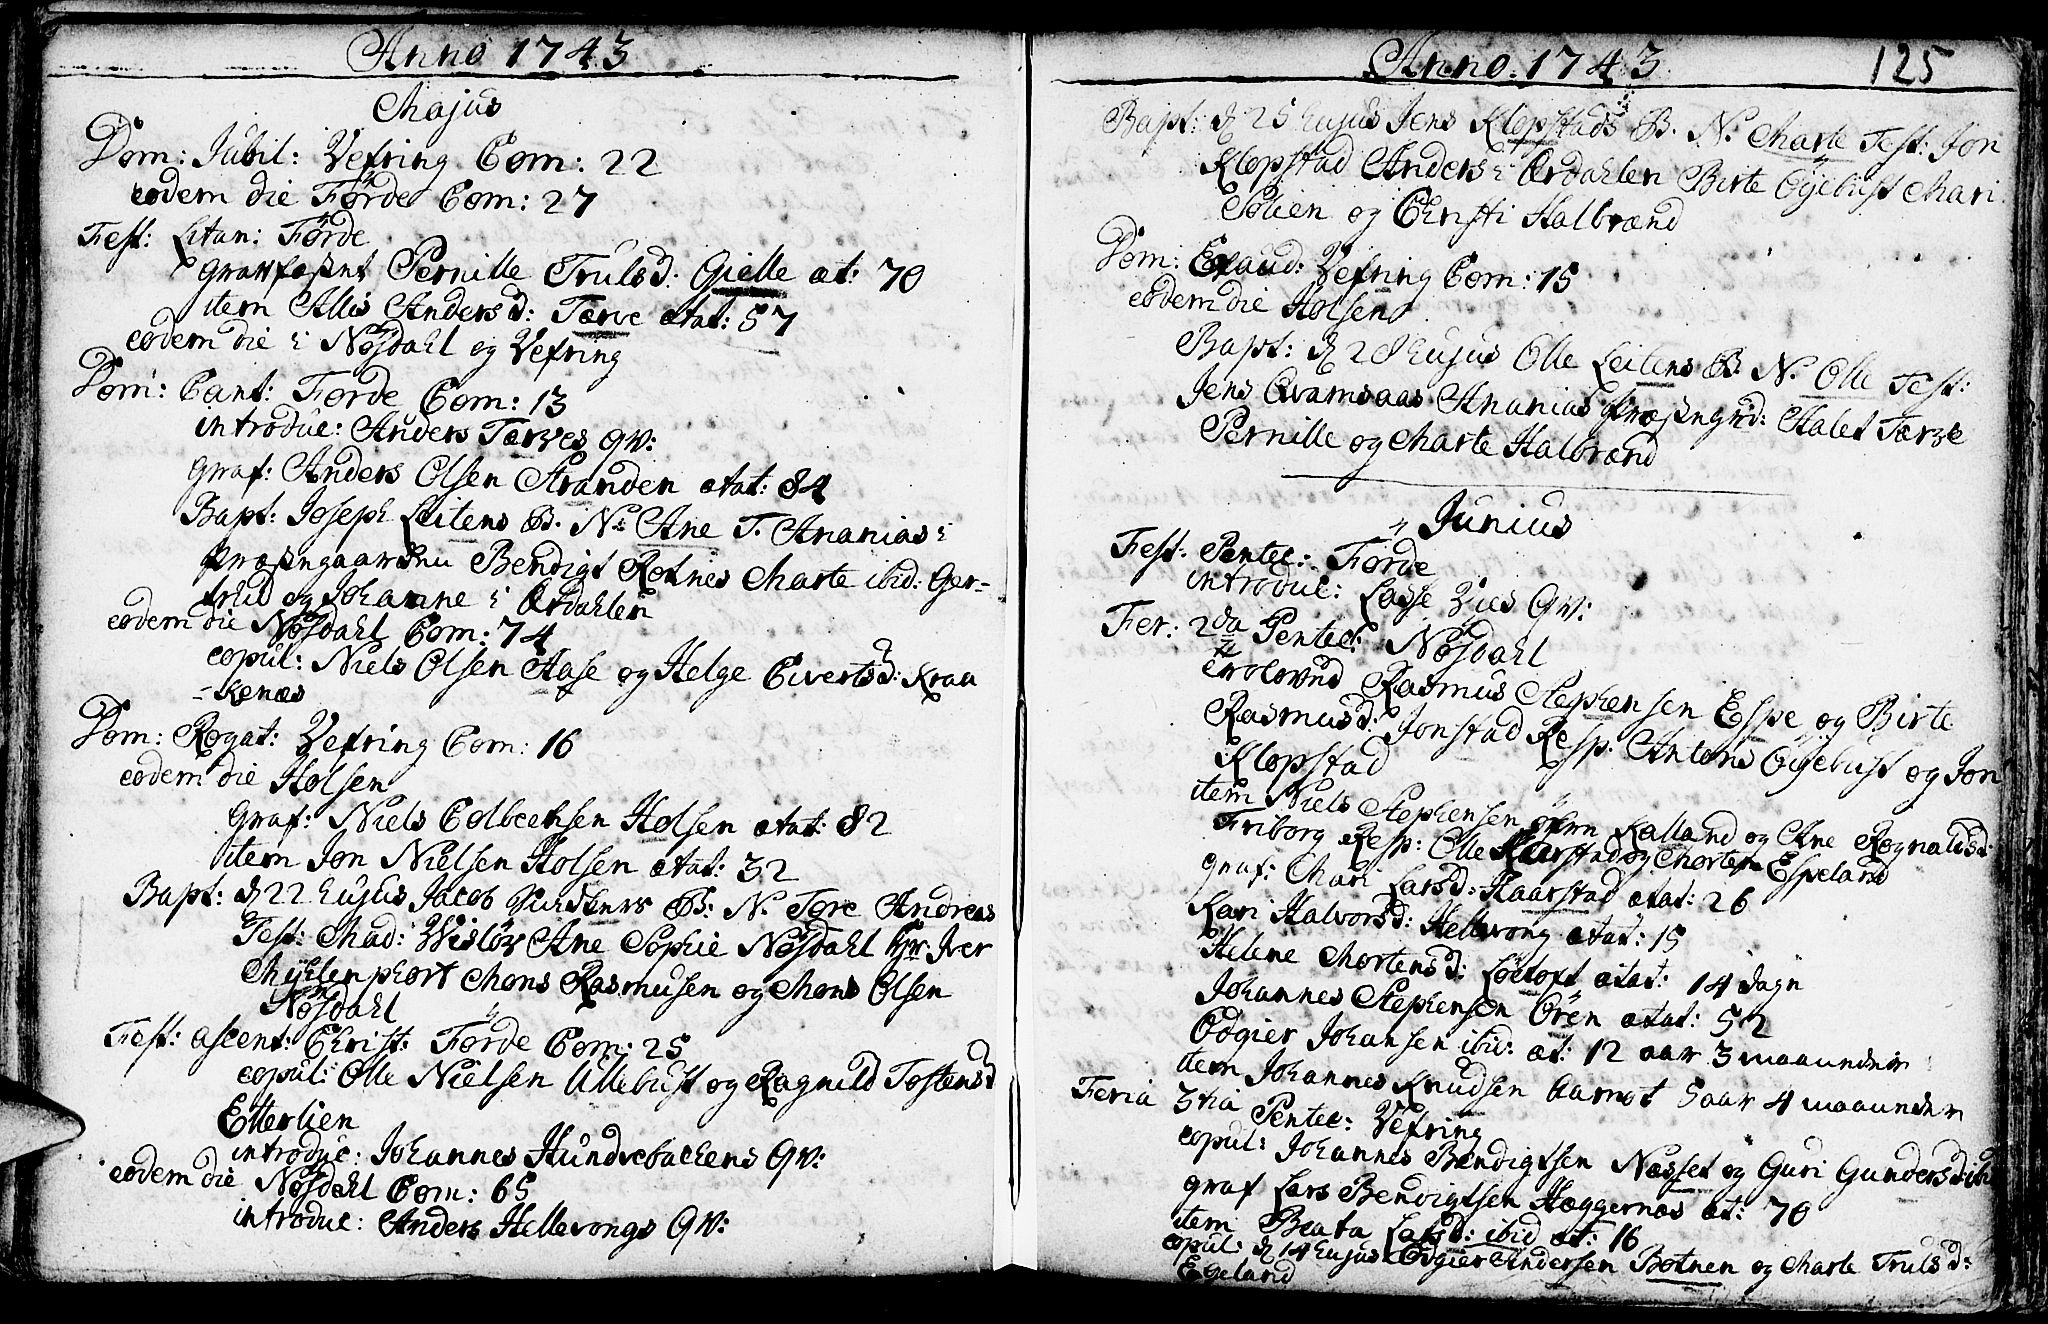 Anno 1743
Majus
Dom: Jubil: Vefring Com: 22
eodem die Førde Com: 27
Fest: Litan: Førde
Graffæstet Pernille Trulsd: Gielle æt: 70
item Allis Andersd: Tærve ætat: 57
eodem die i Nøsdahl og Vefring
Dom: Cant: Førde Com: 13
introduc: Anders Tærves Qv:
Graf: Anders Olsen Stranden ætat: 84
Bapt: Joseph Leitens B. N. Ane T. Ananias i
Bendigt Rotnes Marte ibid: Ger-
trud og Johanne i Ørdahlen
eodem die Nøsdahl Com: 74
copul: Niels Olsen Aase og Helge Evertsd: Kraa
-kenæs
Dom: Rogat: Vefring Com: 16
eodem die Holsen
Graf: Niels Colbeensen Holsen ætat: 82
item Jon Nielsen Holsen ætat: 32
Bapt: d 22 hujus Jacob B: N. Tore Andreas
Test: Mad: Wisløv Ane Sophie Nøsdahl Hr: Iver
Myhlenphort Mons Rasmusen og Mons Olsen
Nøsdahl
Fest: ascent: Christ: Førde Com: 25
copul: Olle Nielsen Ullebust og Ragnild Tostensd
Etterlien
introduc: Johannes Hundvebachens Qv:
eodem die Nøsdahl Com: 65
introduc: Anders Hellevongs Qv:
Anno. 1743 125
Bapt: d 25 hujus Jens Klopstads B. N. Marte Test: Jon
Klopstad Anders i Ørdahlen Birte Øyebust Mari
Solien og Christi Halbrænd
Dom: Exaud: Vefring Com: 15
eodem die Holsen
Bapt: d 28 hujus Olle Leitens B. N. Olle Test:
Jens Qvamsaas Ananias Halet Tærve
Pernille og Marte Halbrænd
Junius
Fest. Pentec: Førde
introduc: Lasse Vies Qv:
Fer: 2da Pentec: Nøsdahl
trolovnd Rasmus Stephensen Espe og Birte
Rasmusd: Jonstad Resp. Antons Øyebust og Jon
Klopstad
item Niels Stephensen Kalland og Ane Rognaldsd:
Friborg Resp: Olle Haarstad og Morten Espeland
Graf: Mari Larsd: Haarstad ætat: 26
Kari Halvorsd: Hellevong ætat: 15
Helene Mortensd: Løetoft ætat: 14 dagn
Johannes Stephensen Ören ætat: 52
Odgier Johansen ibid: æt: 12 aar 3 maaneder
item Johannes Knudsen Aamot 5 aar 4 maaneder
Feria 3tia Pentec: Vefring
copul: Johannes Bendigtsen Næsset og Guri Gundersd ibid
Graf Lars Bendigtsen Hæggernæs æt: 70
item Beata Larsd: ibid æt: 16
copul: d 14 hujus Odgier Andersen Botnen og Marte Trulsd:
Egeland